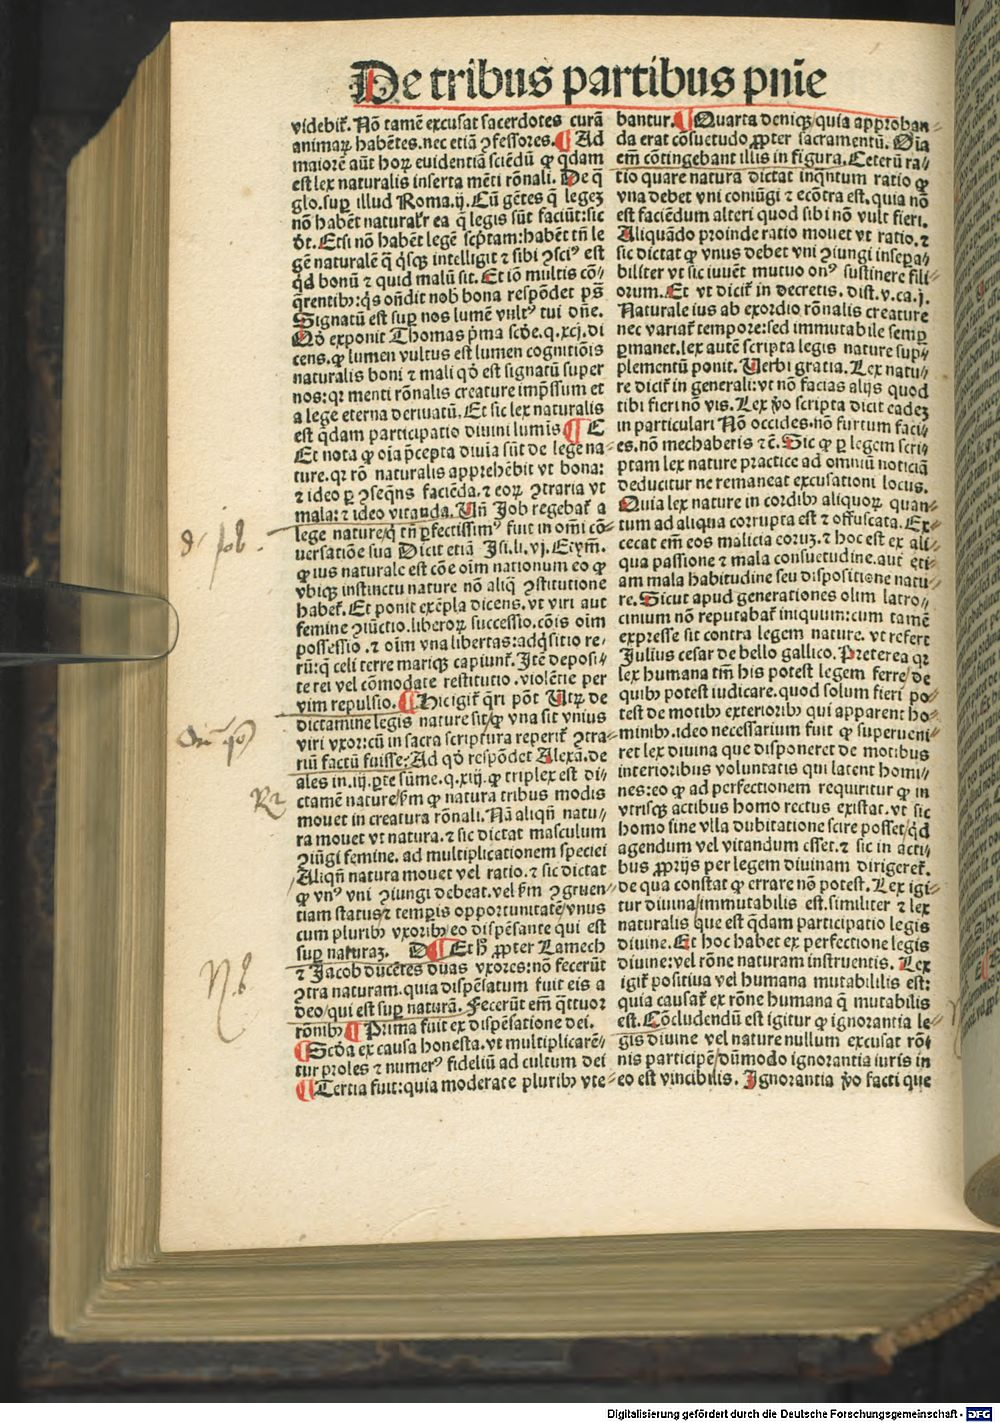 De tribus partibus pnīe
videbit̄. Nō tamē excusat sacerdotes curā
animaꝝ habētes. nec etiā ꝯfessores. ¶ Ad
maiorē aūt horꝝ euidentiā sciēdū ꝙ q̄dam
est lex naturalis inserta mēti rōnali. De q̄
glo. suꝑ illud Roma. ij. Cū gētes q̄ legeꝫ
nō habēt naturalr̄ ea q̄ legis sūt faciūt: sic
d̄t. Etsi nō habēt legē scp̄tam: habēt tn̄ le
gē naturalē q̄ q̄sqꝫ intelligit ⁊ sibi ꝯsciꝰ est
qd̄ bonū ⁊ quid malū sit. Et iō multis cō⸗
q̄rentibꝫ: q̄s on̄dit nob̄ bona respōdet ps̄
Signatū est sup nos lumē vultꝰ tui dn̄e.
Qd̄ exponit Thomas p̄ma scd̄e. q. xcj. di
cens. ꝙ lumen vultus est lumen cognitiōis
naturalis boni ⁊ mali qd̄ est signatū super
nos: qꝛ menti rōnalis creature imp̄ssum et
a lege eterna deriuatū. Et sic lex naturalis
est q̄dam participatio diuini lumīs ¶ C
Et nota ꝙ oīa p̄cepta diuīa sūt de lege na⸗
ture. qꝛ rō naturalis apprehēbit vt bona:
⁊ ideo ꝑ ꝯseqn̄s faciēda. ⁊ eoꝝ ꝯtraria vt
mala: ⁊ ideo vitanda. Un̄ Job regebat̄ a
lege nature / q̄ tn̄ ꝑfectissimꝰ fuit in om̄i cō⸗
uersatiōe sua Dicit etiā Isi. li. vj. Etym̄.
ꝙ ius naturale est cōe oīm nationum eo ꝙ
vbiqꝫ instinctu nature nō aliq̄ ꝯstitutione
habet̄. Et ponit exēpla dicens. vt viri aut
femine ꝯiūctio. liberoꝝ successio. cōis oīm
possessio. ⁊ oīm vna libertas: adq̄sitio re⸗
rū: q̄ celi terre mariqꝫ capiunt̄. Itē deposi⸗
te rei vel cōmodate restitutio. violētie per
vim repulsio. ¶ Hic igit̄ q̄ri pōt Utꝝ de
dictamine legis nature sit / ꝙ vna sit vnius
viri vxor: cū in sacra scriptura reperit̄ ꝯtra⸗
riū factū fuisse: Ad qd̄ respōdet Alexā. de
ales in. iij. ꝑte sūme. q. xiij. ꝙ triplex est di⸗
ctamē nature / s̄m ꝙ natura tribus modis
mouet in creatura rōnali. Nā aliqn̄ natu⸗
ra mouet vt natura. ⁊ sic dictat masculum
ꝯiūgi femine. ad multiplicationem speciei
Aliqn̄ natura mouet vel ratio. ⁊ sic dictat
ꝙ vnꝰ vni ꝯiungi debeat. vel s̄m ꝯgruen⸗
tiam status / ⁊ temꝑis opportunitatē / vnus
cum pluribꝫ vxoribꝫ / eo dispēsante qui est
suꝑ naturaꝫ. D ¶ Et h̄ ꝓpter Lamech
⁊ Jacob ducētes duas vxores: nō fecerūt
ꝯtra naturam. quia dispēsatum fuit eis a
deo / qui est suꝑ naturā. Fecerūt em̄ q̄ttuor
rōnibꝫ ¶ Prima fuit ex dispēsatione dei.
¶ Scd̄a ex causa honesta. vt multiplicarē⸗
tur proles ⁊ numerꝰ fideliū ad cultum dei
¶ Tertia fuit: quia moderate pluribꝫ vte⸗
bantur. ¶ Quarta deniqꝫ / quia approban⸗
da erat cōsuetudo ꝓpter sacramentū. Oīa
em̄ cōtingebant illis in figura. Ceterū ra⸗
tio quare natura dictat inqn̄tum ratio ꝙ
vna debet vni coniūgi ⁊ ecōtra est. quia nō
est faciēdum alteri quod sibi nō vult fieri.
Aliquādo proinde ratio mouet vt ratio. ⁊
sic dictat ꝙ vnus debet vni ꝯiungi insepa⸗
biliter vt sic iuuēt mutuo onꝰ sustinere fili⸗
orum. Et vt dicit̄ in decretis. dist. v. ca. j.
Naturale ius ab exordio rōnalis creature
nec variat̄ tempore: sed immutabile semꝑ
ꝑmanet. lex autē scripta legis nature sup⸗
plementū ponit. Uerbi gratia. Lex natu⸗
re dicit̄ in generali: vt nō facias alijs quod
tibi fieri nō vis. Lex v̄o scripta dicit eadeꝫ
in particulari Nō occides. nō furtum faci⸗
es. nō mechaberis ⁊ c̄. Sic ꝙ ꝑ legem scri⸗
ptam lex nature practice ad omniū noticiā
deducitur ne remaneat excusationi locus.
Quia lex nature in cordibꝫ aliquoꝝ quan⸗
tum ad aliqua corrupta est ⁊ offuscata. Ex⸗
cecat em̄ eos malicia eorum. ⁊ hoc est ex ali⸗
qua passione ⁊ mala consuetudine. aut eti⸗
am mala habitudine seu dispositione natu⸗
re. Sicut apud generationes olim latro⸗
cinium nō reputabat̄ iniquum: cum tamē
expresse sit contra legem nature. vt refert
Julius cesar de bello gallico. Preterea qꝛ
lex humana tm̄ his potest legem ferre / de
quibꝫ potest iudicare. quod solum fieri po⸗
test de motibꝫ exterioribꝫ qui apparent ho⸗
minibꝫ. ideo necessarium fuit ꝙ superueni⸗
ret lex diuina que disponeret de motibus
interioribus voluntatis qui latent homi⸗
nes: eo ꝙ ad perfectionem requiritur ꝙ in
vtrisqꝫ actibus homo rectus existat. vt sic
homo sine vlla dubitatione scire posset / qd̄
agendum vel vitandum esset. ⁊ sic in acti⸗
bus ꝓprijs per legem diuinam dirigeret̄.
de qua constat ꝙ errare nō potest. Lex igi⸗
tur diuina / immutabilis est. similiter ⁊ lex
naturalis que est q̄dam participatio legis
diuine. Et hoc habet ex perfectione legis
diuine: vel rōne naturam instruentis. Lex
igit̄ positiua vel humana mutabililis est:
quia causat̄ ex rōne humana q̄ mutabilis
est. Cōcludendū est igitur ꝙ ignorantia le⸗
gis diuine vel nature nullum excusat rōi
nis participē / dūmodo ignorantia iuris in
eo est vincibilis. Ignorantia v̄o facti que
Job.
N.b.
Digitalisierung gefördert durch die Deutsche Forschungsgemeinschaft - DFG